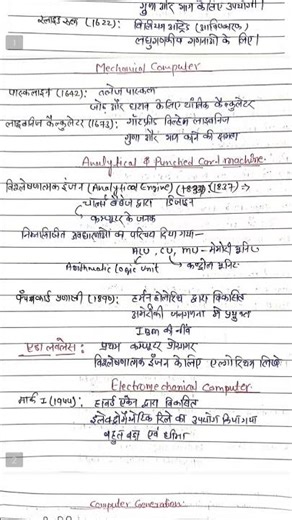 गुणा और भाग के लिए उपयोगी।
स्लाइड रूल (1622): विलियम ऑट्रेड (आविष्कारक)
लघुगणकीय गणनाओं के लिए।
1
Mechanical Computer
पास्कलाइन (1642): ब्लेज पास्कल
जोड़ और घटाव के लिए यांत्रिक कैलकुलेटर
लाइबनिज कैलकुलेटर (1673): गॉटफ्रीड विल्हेम लाइबनिज
गुणा और भाग करने की क्षमता
Analytical & Punched Card machine.
विश्लेषणात्मक इंजन (Analytical Engine) (1837) →
चार्ल्स बैबेज द्वारा डिजाइन
कम्प्यूटर के जनक
निम्नलिखित अवधारणाओं का परिचय दिया गया—
ALU, CU, MU - मेमोरी यूनिट
Arithmatic logic unit कन्ट्रोल यूनिट
पंचकार्ड प्रणाली (1890): हर्मन होलेरिथ द्वारा विकसित
अमेरिकी जनगणना में प्रयुक्त
IBM की नींव
एडा लवलेस: प्रथम कम्प्यूटर प्रोग्रामर
विश्लेषणात्मक इंजन के लिए एल्गोरिथम लिखे
Electromechanical Computer
मार्क I (1944): हावर्ड ऐकेन द्वारा विकसित
इलेक्ट्रोमैग्नेटिक रिले का उपयोग किया गया
बहुत बड़ा एवं धीमा
2
Computer Generation.